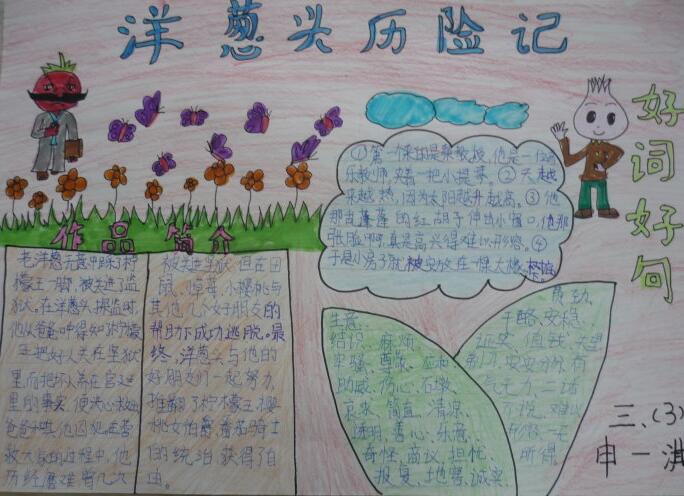 洋葱头历险记
好词好句
①第一个来的是梨教授,他是一位
乐教师,夹着一把小提琴。②天越
来越热,因为太阳越升越高。③他
那蓬蓬的红胡子伸出小窗口,他那
张脸啊,真是高兴得难以形容。④
于是小男子就被安放在一棵大橡
作品简介
老洋葱无意中踩了柠
檬王一脚,被关进了监
狱。在洋葱头探监时,
他从爸爸口中得知柠檬
王把好人关在监狱
里而把坏人养在宫廷
里的事实,便决心救出
爸爸
救大家的过程中,他
历经磨难,曾几次
被关进监狱,但在田
鼠、草莓、小樱桃与
其他几个好朋友的
帮助下成功逃脱。最
终,洋葱头与他的
好朋友们一起努力,
推翻了柠檬王、樱
桃女伯爵、番茄骑士
的统治,获得了自
由。
生意、
结识、麻烦、
牢骚、尊敬、应和
助威、伤心、石墩、
哀求、简直、清凉、
透明、善心、乐意、
奇怪、商议、担忧、
报复、地窖、诚实、
费劲、
干酪、安稳、
安安分分、有
气无力、二话
不说、难以
形容、一无
所得
三、(3)
申一淇